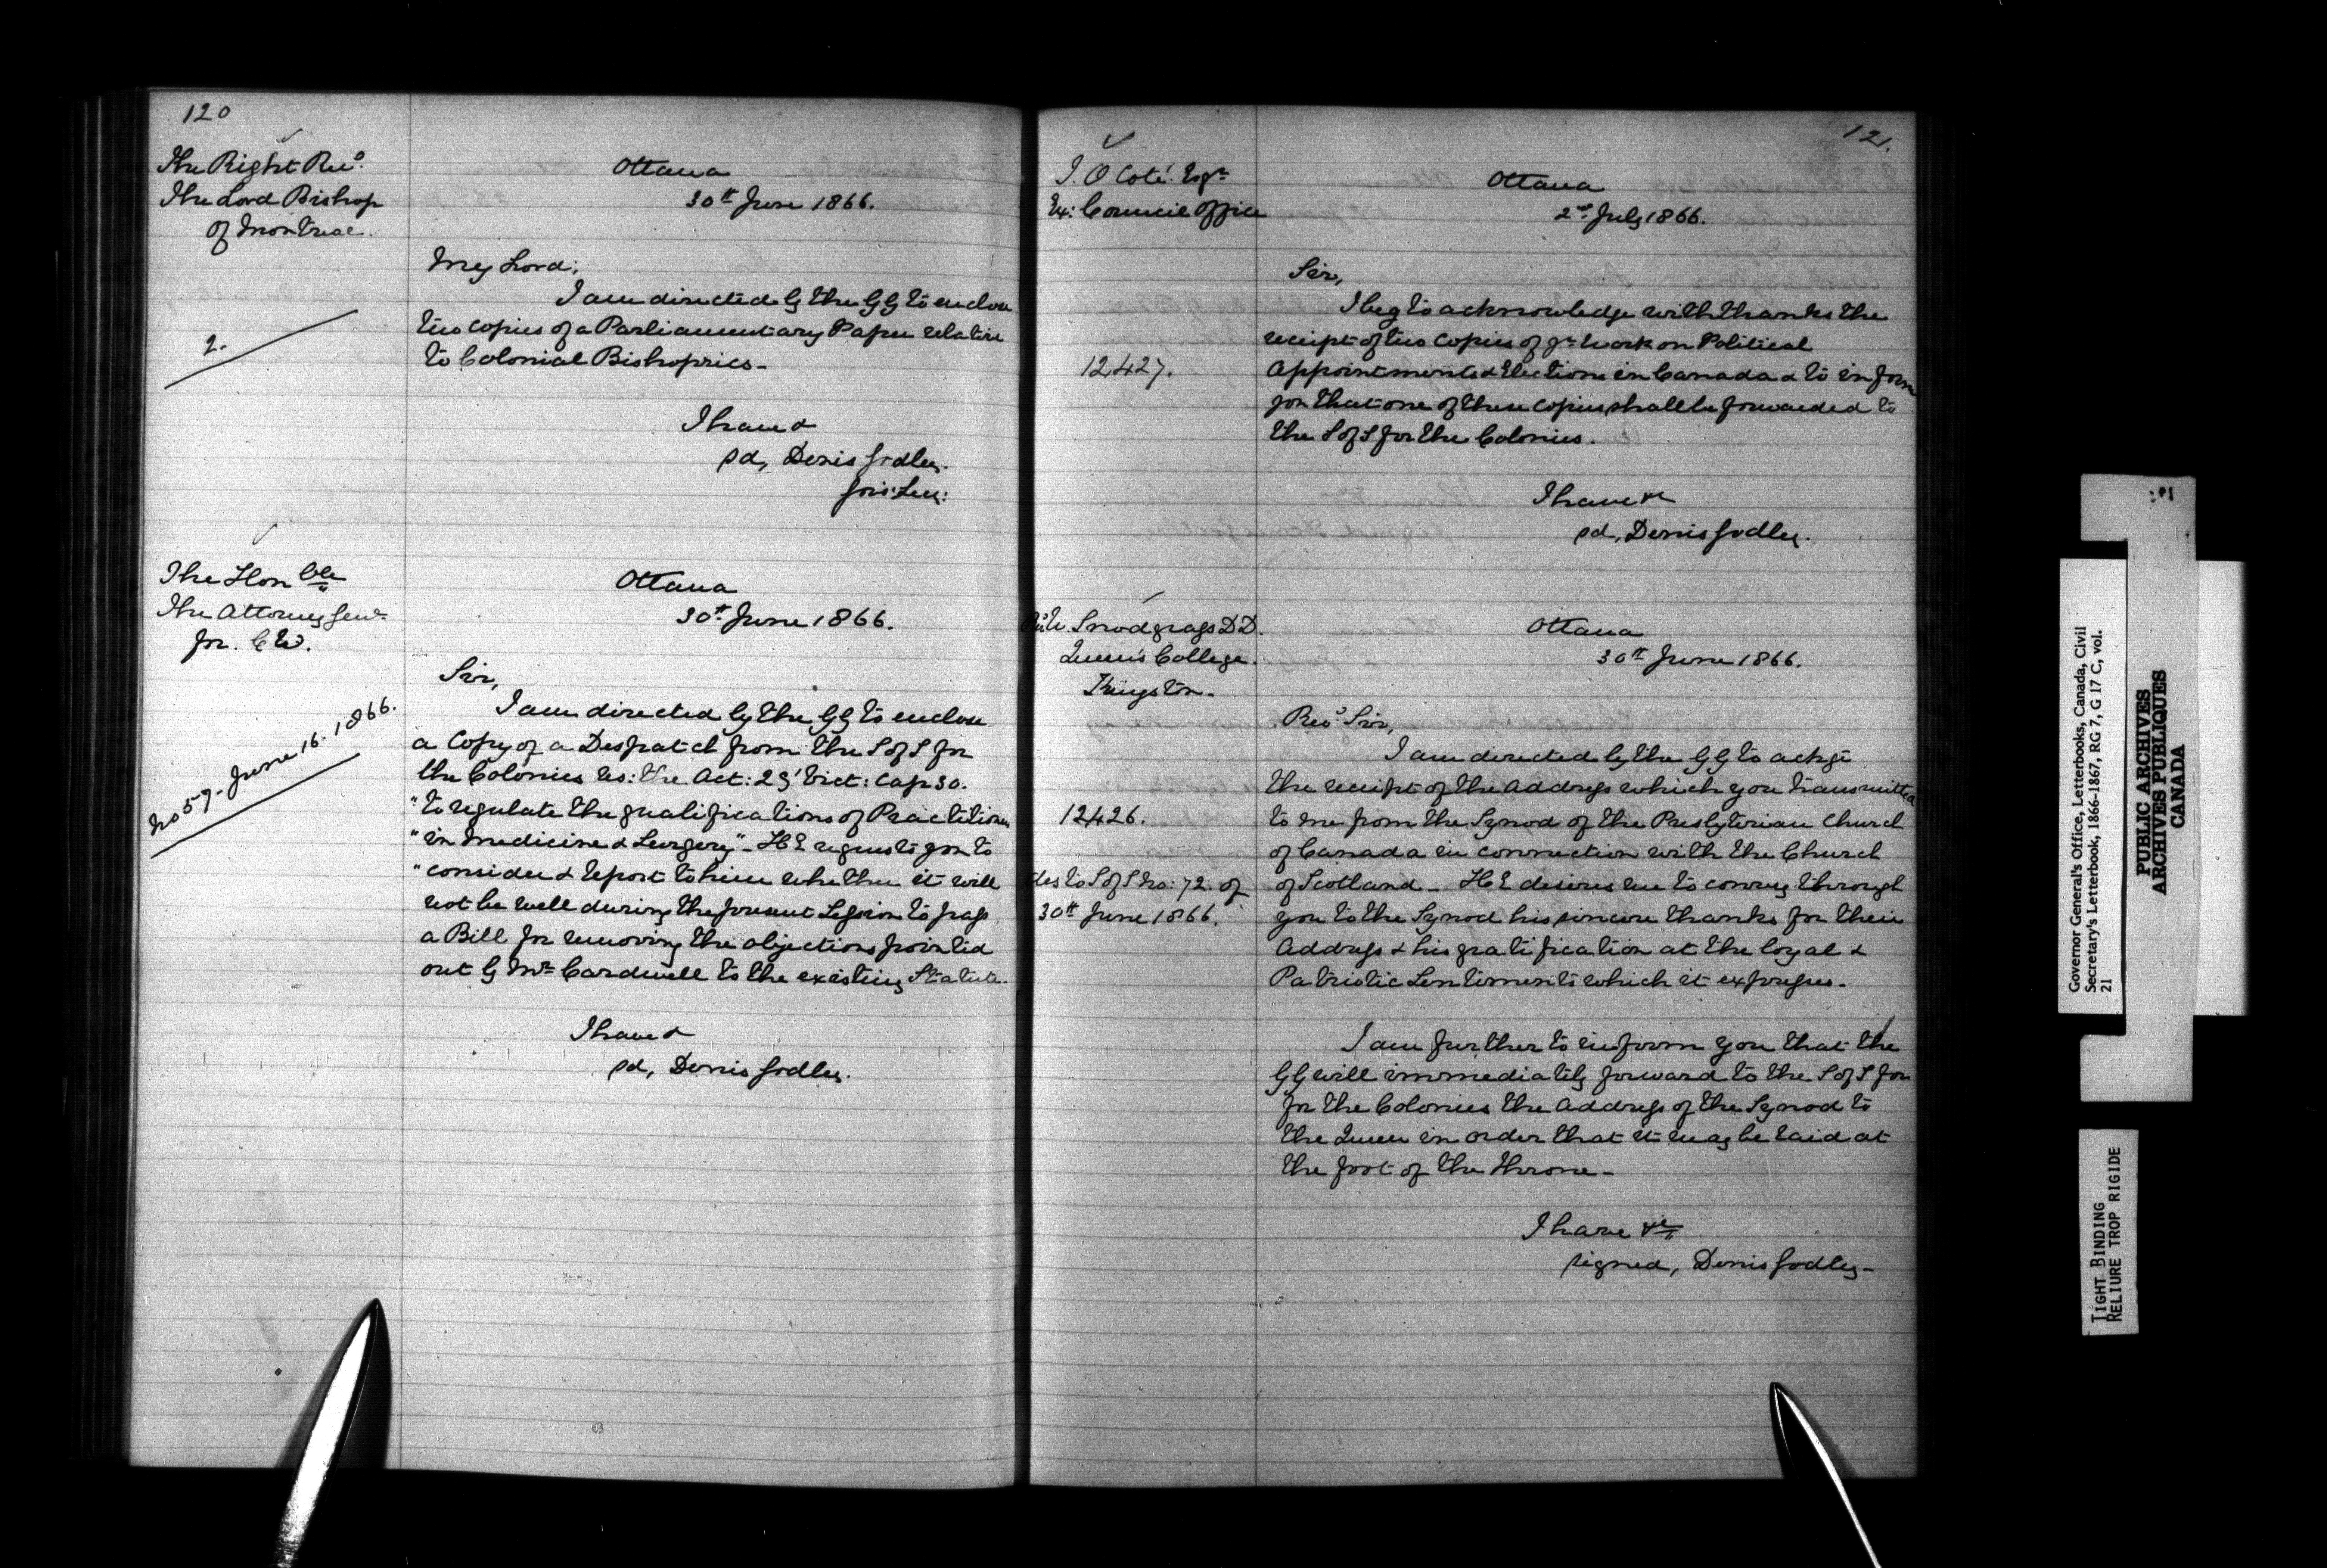 120
The Right Revd.
The Lord Bishop
of Montreal.
Ottawa
30th June 1866.
My Lord,
I am directed by the GG to enclose
two copies of a Parliamentary Paper relative
2.
to Colonial Bishoprics -
I have &
sd, Denis Godley.
Gov: Sec:
The Honble
The Attorney Genl.
for. C W.
Ottawa
30th June 1866.
Sir,
No 57 - June 16 - 1866.
I am directed by the GG to enclose
a Copy of a Despatch from the S of S for
the Colonies res: the Act: 29 Vict: Cap 30.
"to regulate the qualifications of Practitioners
"in Medicine & Surgery" - H E requests you to
"consider & report to him whether it will
not be well during the present Session to pass
a Bill for removing the objections pointed
out by Mr Cardwell to the existing Statute.
I have &
sd, Denis Godley.
121.
J. O Coté. Esqr
Ex: Council Office
Ottawa
2nd July 1866.
Sir,
I beg to acknowledge with thanks the
receipt of two copies of yr work on Political
12427.
Appointments & Elections in Canada & to inform
you that one of these copies shall be forwarded to
the S of S for the Colonies.
I have &c
sd, Denis Godley.
Revd W. Snodgrass D D.
Queen's College.
Kingston.
Ottawa
30th June 1866.
Revd Sir,
I am directed by the GG to ackge
the receipt of the Address which you transmitted
12426.
to me from the Synod of the Presbyterian Church
of Canada in connection with the Church
des to S of S No: 72. of
30th June 1866.
of Scotland - H E desires me to convey through
you to the Synod his sincere thanks for their
Address & his gratification at the loyal &
Patriotic Sentiments which it expresses.
I am further to inform you that the
GG will immediately forward to the S of S for
for the Colonies the Address of the Synod to
the Queen in order that it may be laid at
the foot of the throne -
I have &c
signed, Denis Godley -
Governor General's Office, Letterbooks, Canada, Civil
Secretary's Letterbook, 1866-1867, RG 7, G 17 C, vol.
21
PUBLIC ARCHIVES
ARCHIVES PUBLIQUES
CANADA
TIGHT BINDING
RELIURE TROP RIGIDE